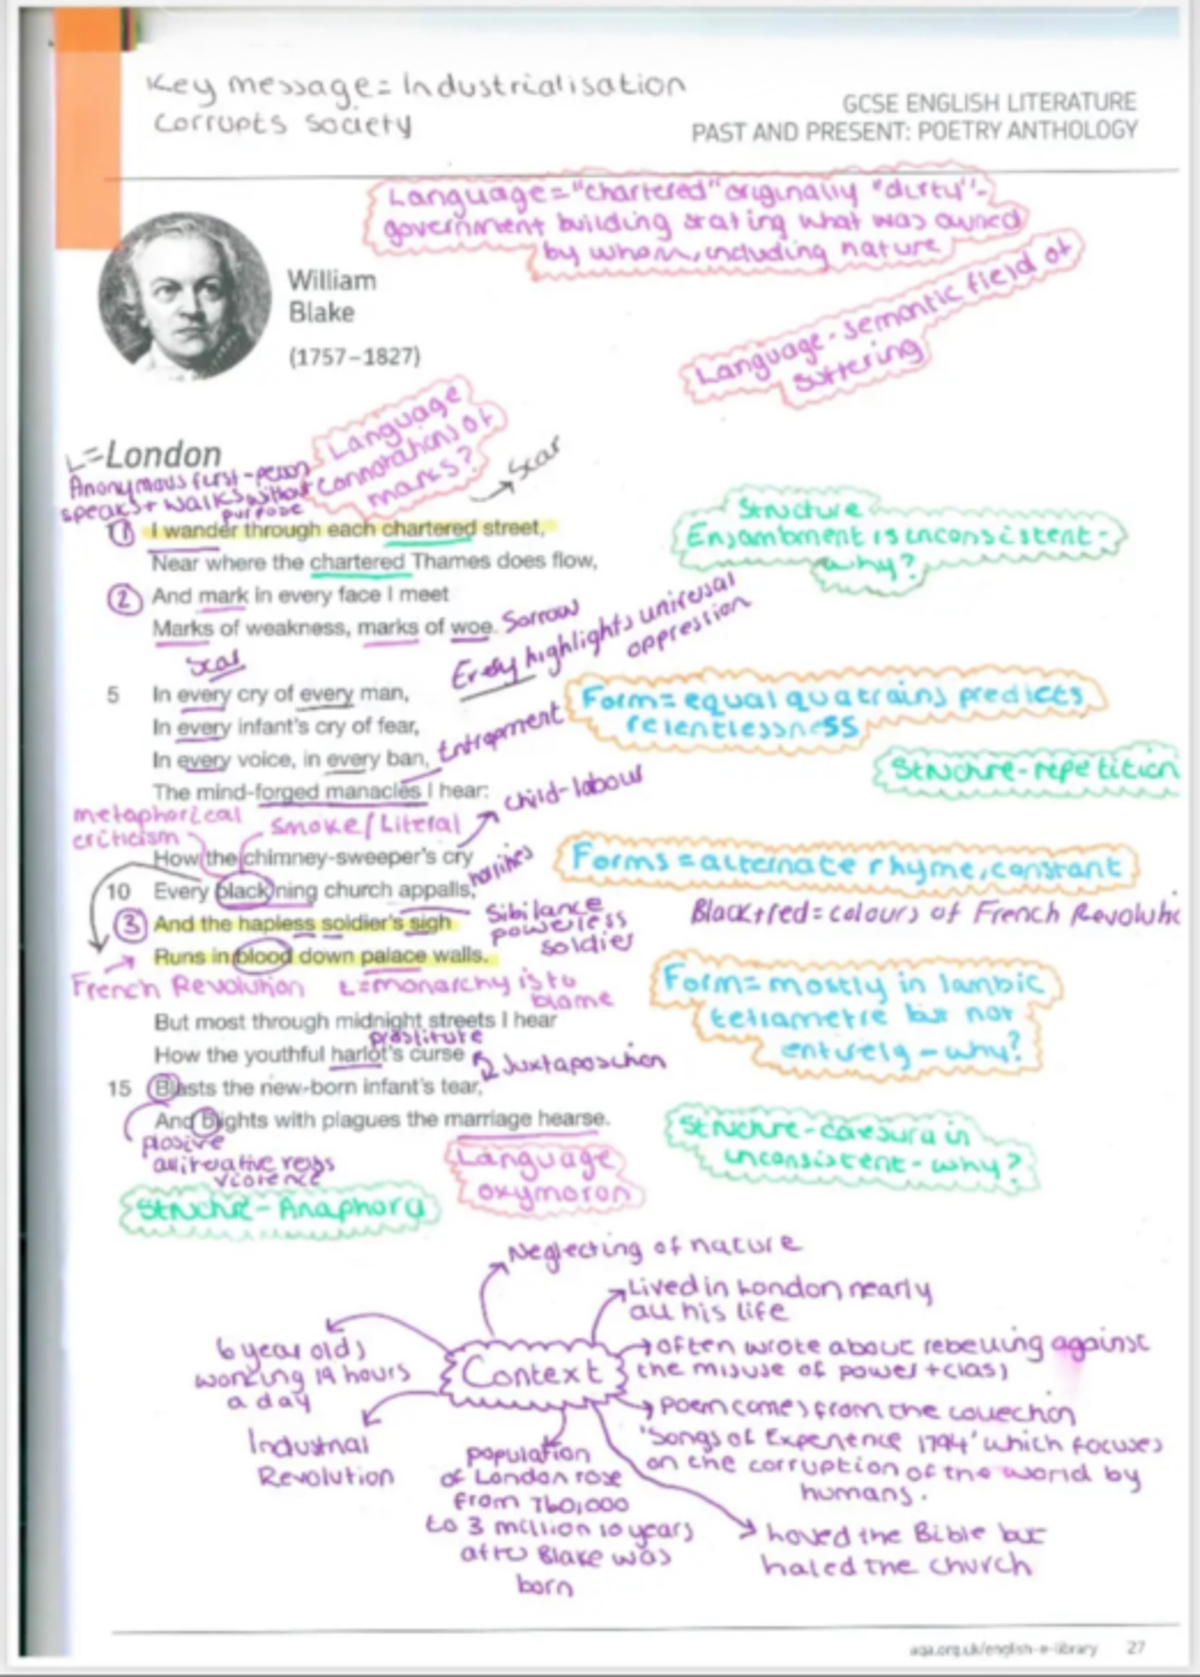 Key message = Industrialisation
corrupts society
GCSE ENGLISH LITERATURE
PAST AND PRESENT: POETRY ANTHOLOGY
Language = "chartered" originally "dirty" -
government building stating what was owned
by whom, including nature
Language - semantic field of
suffering
William
Blake
(1757–1827)
Language
connotations of
marks?
Scar
L= London
Anonymous first-person
speaks + walks without
purpose
① I wander through each chartered street,
Near where the chartered Thames does flow,
② And mark in every face I meet
Marks of weakness, marks of woe. Sorrow
Scar
Structure
Enjambment is inconsistent -
why?
Every highlights universal
oppression
5 In every cry of every man,
In every infant's cry of fear,
In every voice, in every ban,
The mind-forged manacles I hear:
Entrapment
Form = equal quatrains predicts
relentlessness
Structure - repetition
metaphorical
criticism
Smoke/Literal
child-labour
How the chimney-sweeper's cry
10 Every blackning church appalls,
③ And the hapless soldier's sigh
Runs in blood down palace walls.
horrifies
Sibilance
powerless
soldier
Forms = alternate rhyme, constant
Black + red = colours of French Revolutio
French Revolution
L = monarchy is to
blame
Form = mostly in Iambic
tetrametre but not
entirely - why?
But most through midnight streets I hear
prostitute
How the youthful harlot's curse
Juxtaposition
15 Blasts the new-born infant's tear,
And blights with plagues the marriage hearse.
plosive
alliterative reps
violence
Language
oxymoron
Structure - caesura in
inconsistent - why?
Structure - Anaphora
Context
Neglecting of nature
Lived in London nearly
all his life
often wrote about rebelling against
the misuse of power + class
poem comes from the collection
'Songs of Experience 1794' which focuses
on the corruption of the world by
humans.
hoved the Bible but
haled the church
population
of London rose
from 760,000
to 3 million 10 years
after Blake was
born
Industrial
Revolution
6 year olds
working 19 hours
a day
aqa.org.uk/english-e-library 27